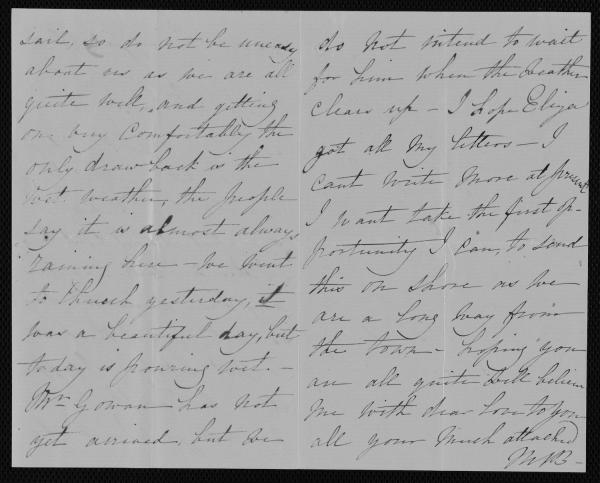 sail, so do not be uneasy
about us as we are all
quite well, and getting
on very Comfortably the
only draw back is the
wet weather, the people
say it is almost always
raining here - We went
to Church yesterday, it
was a beautiful day, but
today is pouring wet. -
Mr Gowan has not
yet arrived, but we
do not intend to wait
for him when the weather
clears up - I hope Eliza
got all my letters - I
cant write more at present
I want take the first op-
portunity I can, to send
this on shore as we
are a long way from
the town - hoping you
are all quite well believe
me with dear love to you
all your much attached